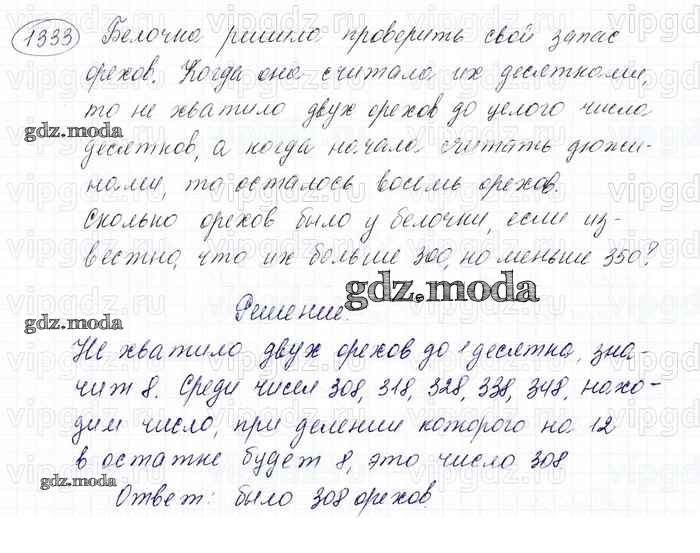 1333 Белочка решила проверить свой запас
орехов. Когда она считала их десятками,
то не хватило двух орехов до целого числа
gdz.moda
десятков, а когда начала считать дюжи-
нами, то осталось восемь орехов.
Сколько орехов было у белочки, если из-
вестно, что их больше 300, но меньше 350?
gdz.moda
Решение.
gdz.moda
Не хватило двух орехов до 1 десятка, зна-
чит 8. Среди чисел 308, 318, 328, 338, 348, нахо-
дим число, при делении которого на 12
в остатке будет 8, это число 308
gdz.moda
Ответ: было 308 орехов.